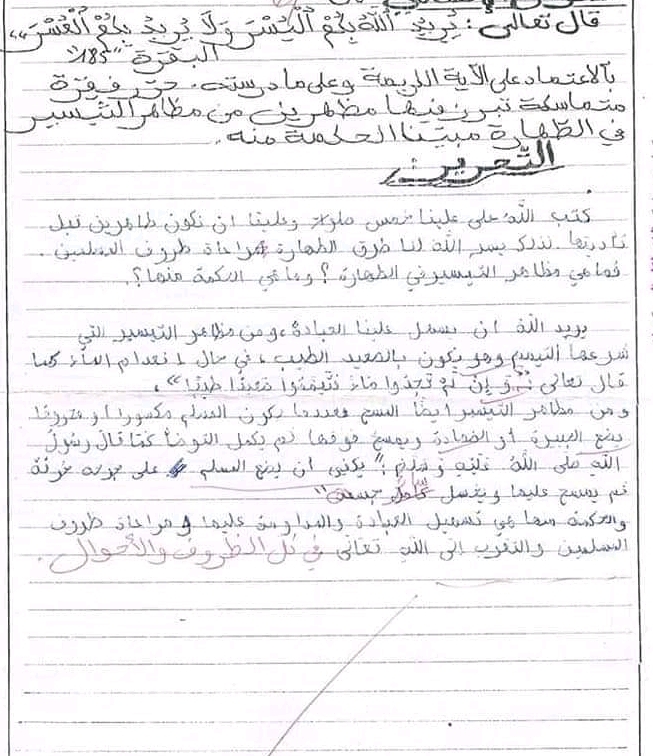 قال تعالى: يُرِيدُ اللَّهُ بِكُمُ الْيُسْرَ وَلَا يُرِيدُ بِكُمُ الْعُسْرَ"
البقرة "185"
بالاعتماد على الآية الكريمة وعلى ما درسته. حرّر فقرة
متماسكة تبرز فيها مظهرين من مظاهر التيسير
في الطهارة مبيّنا الحكمة منه.
التحرير:
كتب الله على علينا خمس صلوات وعلينا ان نكون طاهرين قبل
تأديتها. لذلك يسر الله لنا طرق الطهارة مراعاة ظروف المسلمين.
فما هي مظاهر التيسير في الطهارة؟ وما هي الحكمة منها؟.
يريد الله ان يسهل علينا العبادة، ومن مظاهر التيسير التي
شرعها التيمم وهو يكون بالصعيد الطيب، في حال انعدام الماء كما
قال تعالى: "وَإِنْ لَمْ تَجِدُوا مَاءً فَتَيَمَّمُوا صَعِيدًا طَيِّبًا".
ومن مظاهر التيسير ايضا المسح فعندما يكون المسلم مكسورا او محروقا
يضع الجبيرة أو الضمادة ويمسح فوقها ثم يكمل التوضأ كما قال رسول
الله صلى اللهُ عَلَيْهِ وَسَلَّم: "يكفي ان يضع المسلم على جرحه خرقة
ثم يمسح عليها ويغسل كامل جسده"
والحكمة منها هي تسهيل العبادة والمداومة عليها و مراعاة ظروف
المسلمين والتقرب إلى الله تعالى في كل الظروف والأحوال.